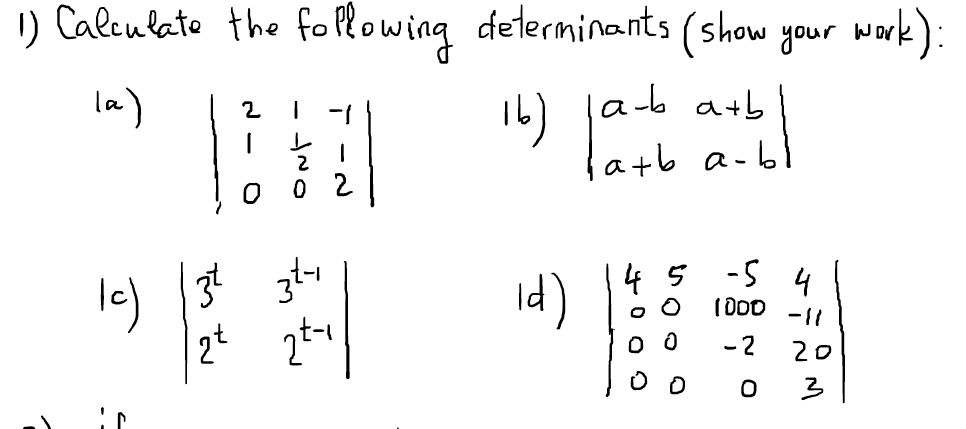 1) Calculate the following determinants (show your work):
1a) | 2 1 -1 |
| 1 1/2 1 |
| 0 0 2 |
1b) | a-b a+b |
| a+b a-b |
1c) | 3^t 3^(t-1) |
| 2^t 2^(t-1) |
1d) | 4 5 -5 4 |
| 0 0 1000 -11 |
| 0 0 -2 20 |
| 0 0 0 3 |